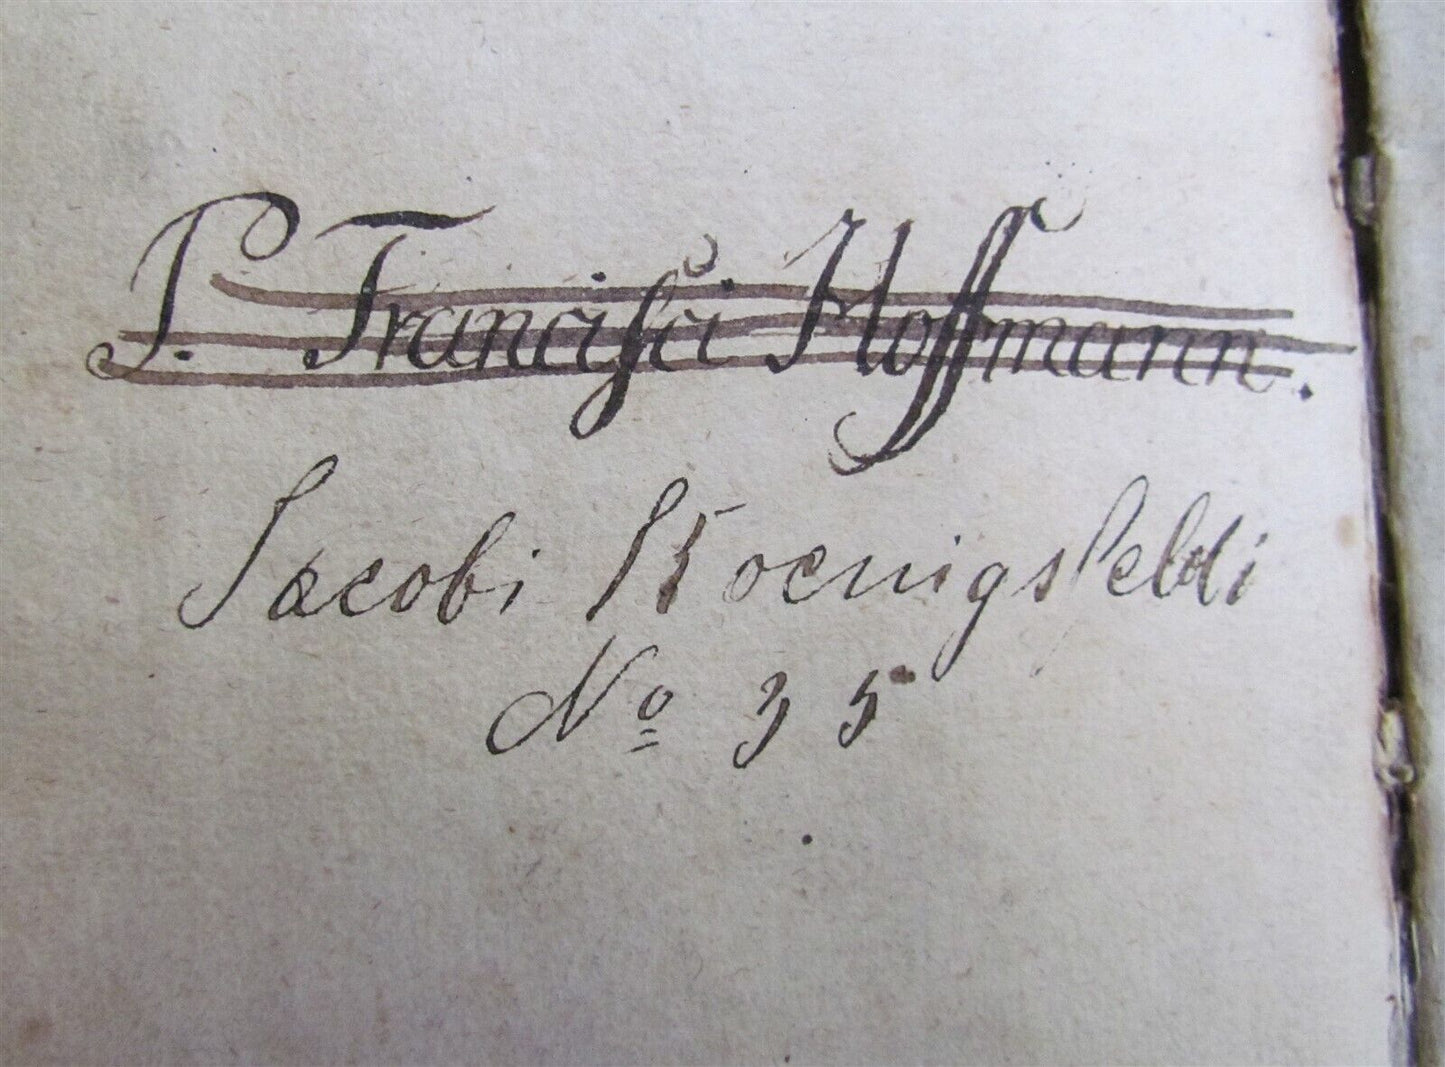 P. Francisci Hoffmann.
Jacobi Koenigsfeldi
Nº 35